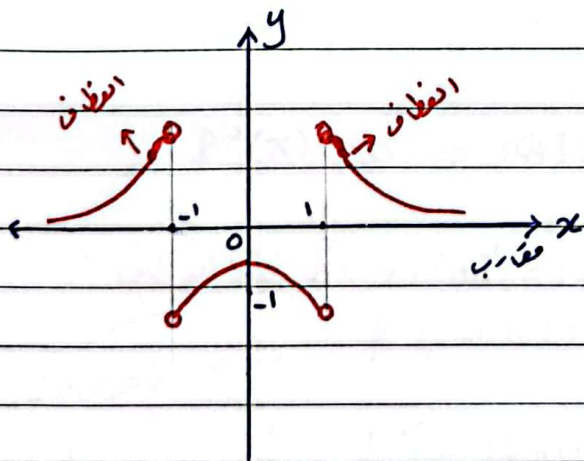 y
انعطاف
انعطاف
-1
1
x
0
مقارب
-1